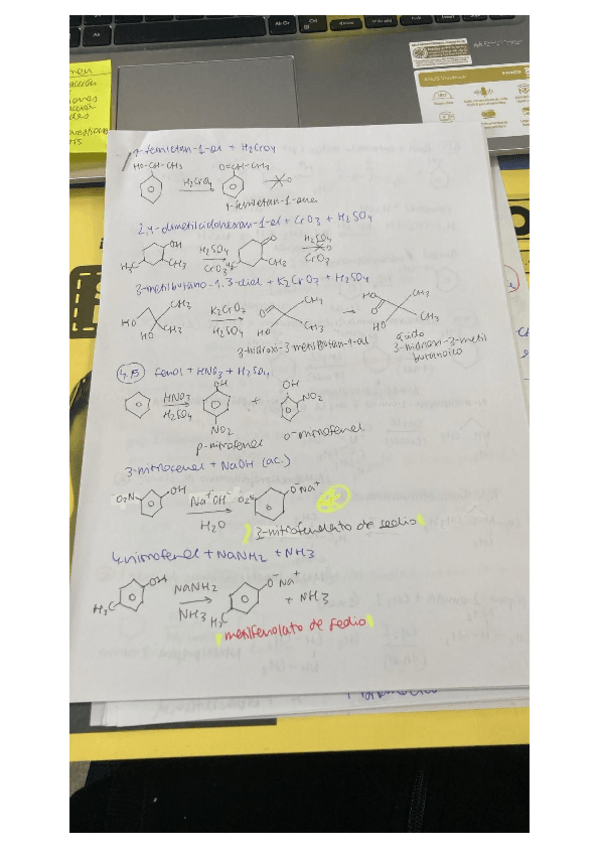 1-feniletan-1-ol + H2CrO4
HO-CH-CH3 O=CH-CH3
H2CrO4
1-feniletan-1-ona
2,4-dimetilciclohexan-1-ol + CrO3 + H2SO4
OH H2SO4 O H2SO4
H3C CH3 CrO3 CH3 CrO3
3-metilbutano-1,3-diol + K2CrO7 + H2SO4
CH3 K2CrO7 O CH3 HO O CH3
HO HO CH3 H2SO4 HO CH3 HO CH3
3-hidroxi-3-metilbutan-1-al
ácido
3-hidroxi-3-metil
butanoico
4.15 fenol + HNO3 + H2SO4
HNO3 OH + OH NO2
H2SO4
NO2
p-nitrofenol o-nitrofenol
+ NaOH (ac.)
O2N OH Na+OH- O2N O-Na+
H2O
3-nitrofenolato de sodio
+ NaNH2 + NH3
OH NaNH2 O-Na+
H3C NH3 H3C + NH3
metilfenolato de sodio